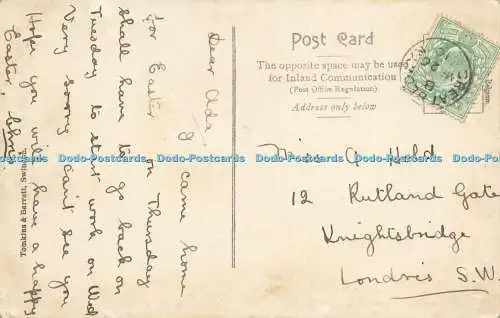 Dear Ada,
I came home
on Thursday
for Easter
shall have to go back on
Tuesday to start work on Wed
Very sorry can't see you
Hope you will have a happy
Easter.
Tomkins & Barrett, Swindon.
Post Card
The opposite space may be used
for Inland Communication
(Post Office Regulation)
Address only below
Miss A Held
12 Rutland Gate
Knightsbridge
Londres S.W.
Dodo-Postcards Dodo-Postcards Dodo-Postcards Dodo-Postcards Dodo-Postcards
Dodo-Postcards Dodo-Postcards Dodo-Postcards Dodo-Postcards Dodo-Postcards